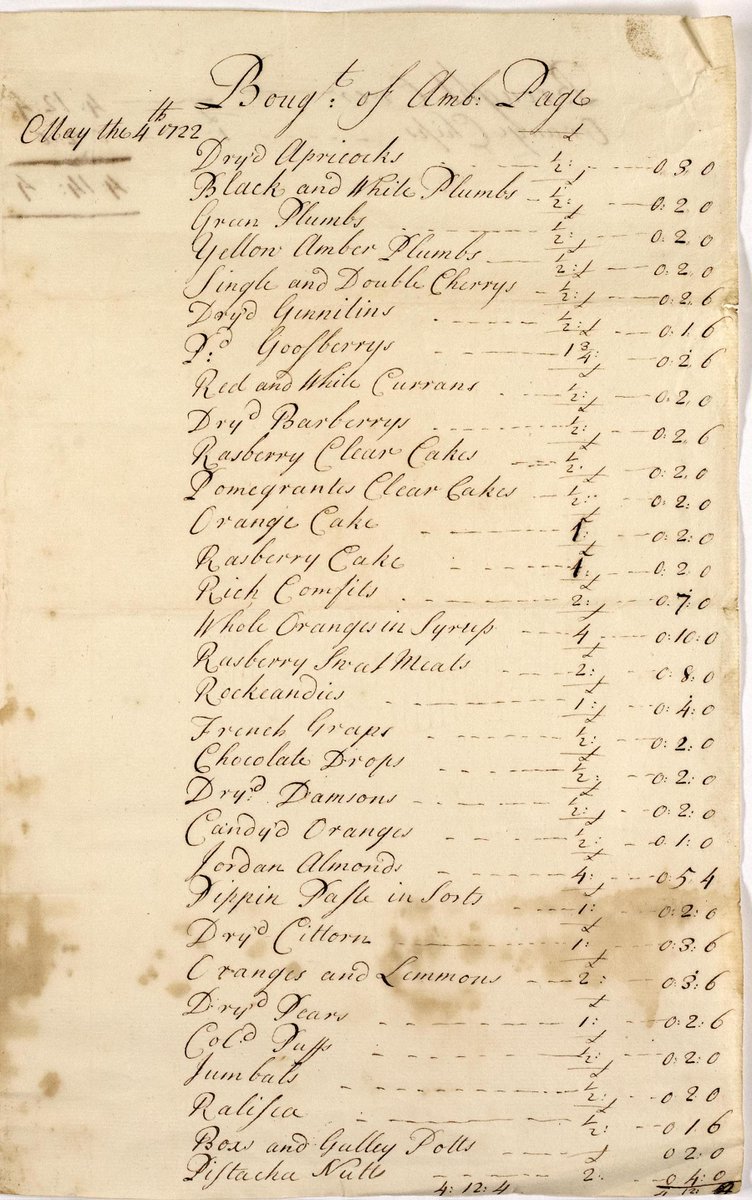 Bougt: of Amb: Page
May the 4th 1722
Dry'd Apricocks ½: 0: 3: 0
Black and White Plumbs ½: 0: 2: 0
Green Plumbs ½: 0: 2: 0
Yellow Amber Plumbs ½: 0: 2: 0
Single and Double Cherrys ½: 0: 2: 6
Dry'd Gennitins ½: 0: 1: 6
Dd: Goosberrys 1¾: 0: 2: 6
Red and White Currans ½: 0: 2: 0
Dry'd Barberrys ½: 0: 2: 6
Rasberry Clear Cakes ½: 0: 2: 0
Pomegrantes Clear Cakes ½: 0: 2: 0
Orange Cake 1: 0: 2: 0
Rasberry Cake 1: 0: 2: 0
Rich Comfits 2: 0: 7: 0
Whole Oranges in Syrup 4 0: 10: 0
Rasberry Sweat Meats 2: 0: 8: 0
Rockeandies 1: 0: 4: 0
French Graps ½: 0: 2: 0
Chocolate Drops ½: 0: 2: 0
Dry'd Damsons ½: 0: 2: 0
Candy'd Oranges ½: 0: 1: 0
Jordan Almonds 4: 0: 5 4
Pippin Paste in Sorts 1: 0: 2: 0
Dry'd Cittorn 1: 0: 3: 6
Oranges and Lemmons 2: 0: 3: 6
Dry'd Pears 1: 0: 2: 6
Col:d Puffs ½: 0: 2: 0
Jumbals ½: 0 2 0
Ralifea ½: 0 1 6
Boxs and Galley Potts 0 2 0
Pistacha Nutts 2: 0 4: 0
4: 12: 4